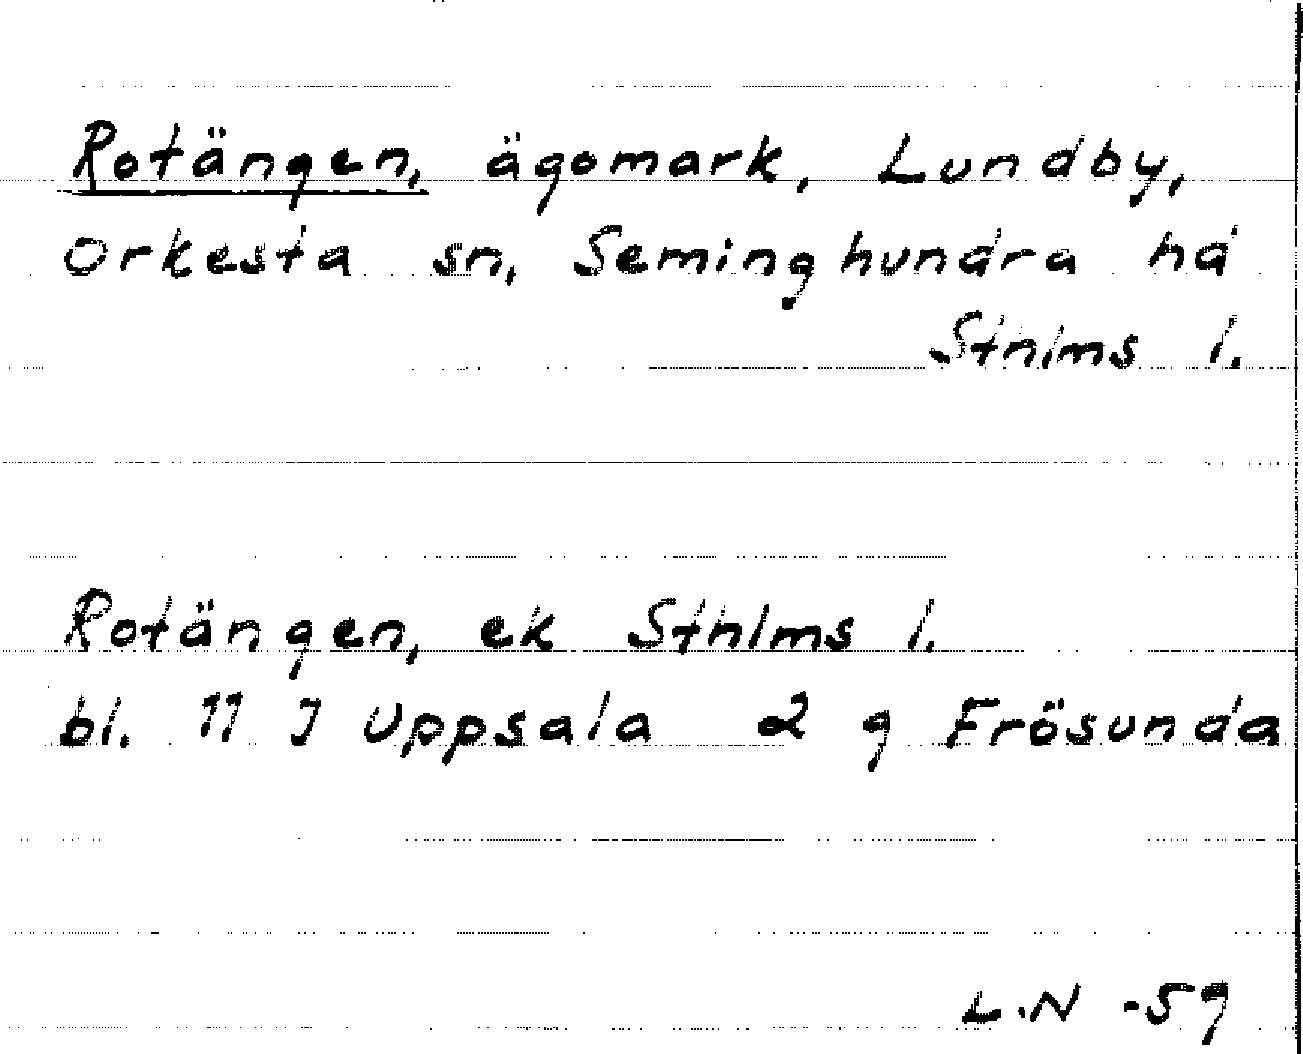 Rotängen, ägomark, Lundby,
Orkesta sn, Seminghundra hd
Sthlms l.
Rotängen, ek Sthlms l.
bl. 11 I Uppsala 2 g Frösunda
L.N -59